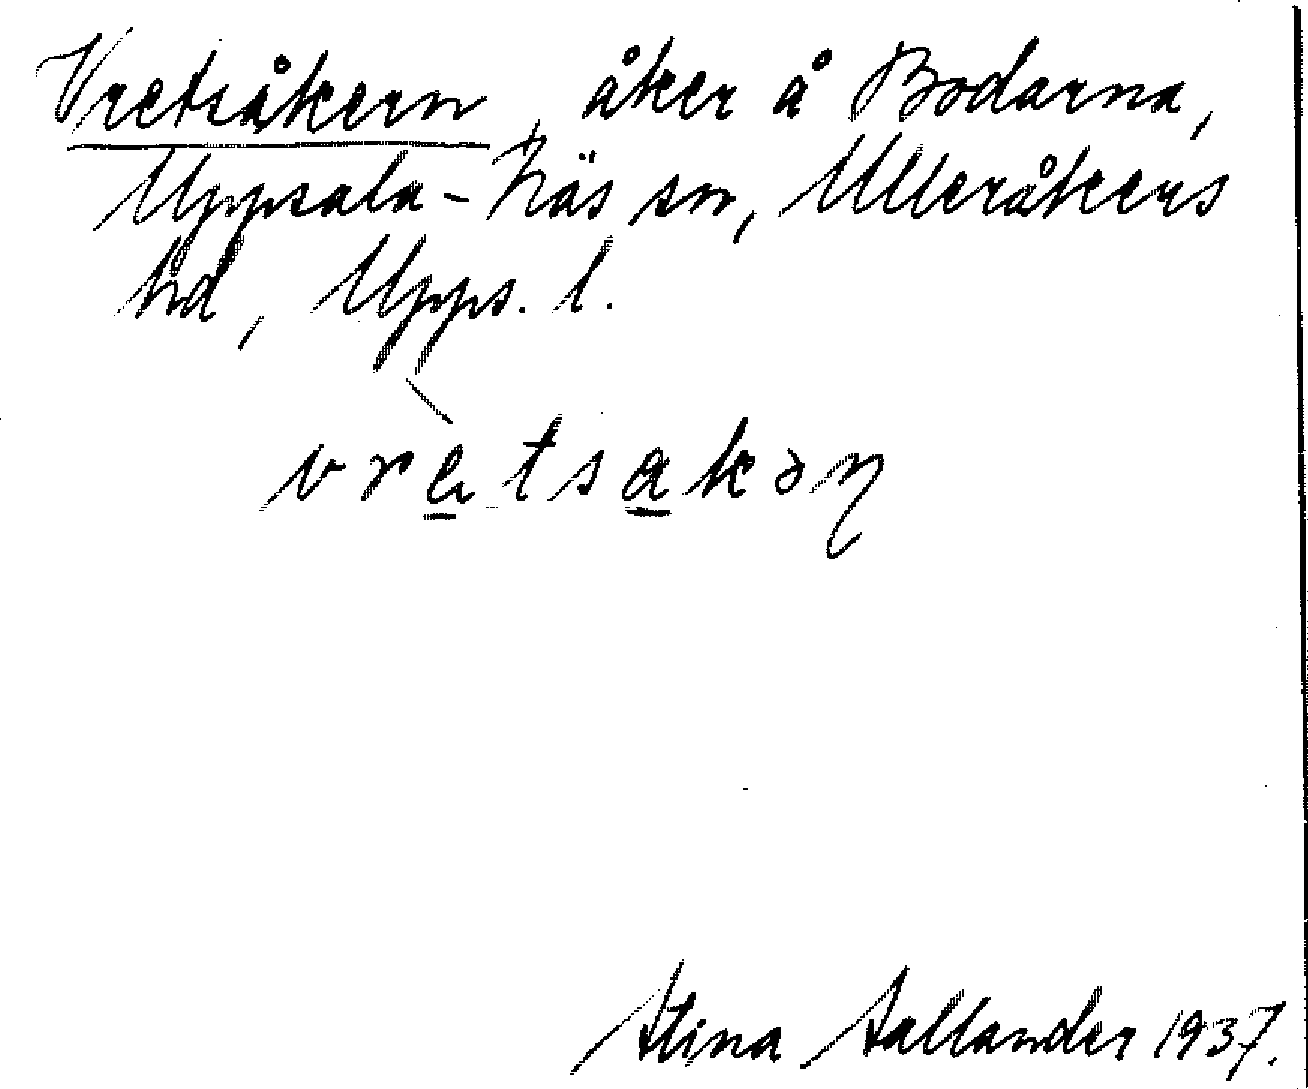 Vretsåkern, åker å Bodarna,
Uppsala-Näs sn, Ulleråkers
hd, Upps. l.
vre̲tsa̲kəɳ
Stina Sallander 1937.